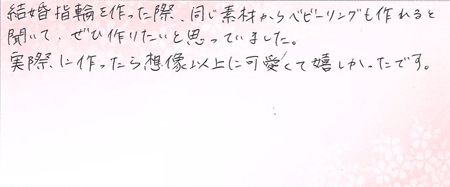 結婚指輪を作った際、同じ素材からベビーリングも作れると
聞いて、ぜひ作りたいと思っていました。
実際に作ったら想像以上に可愛くて嬉しかったです。